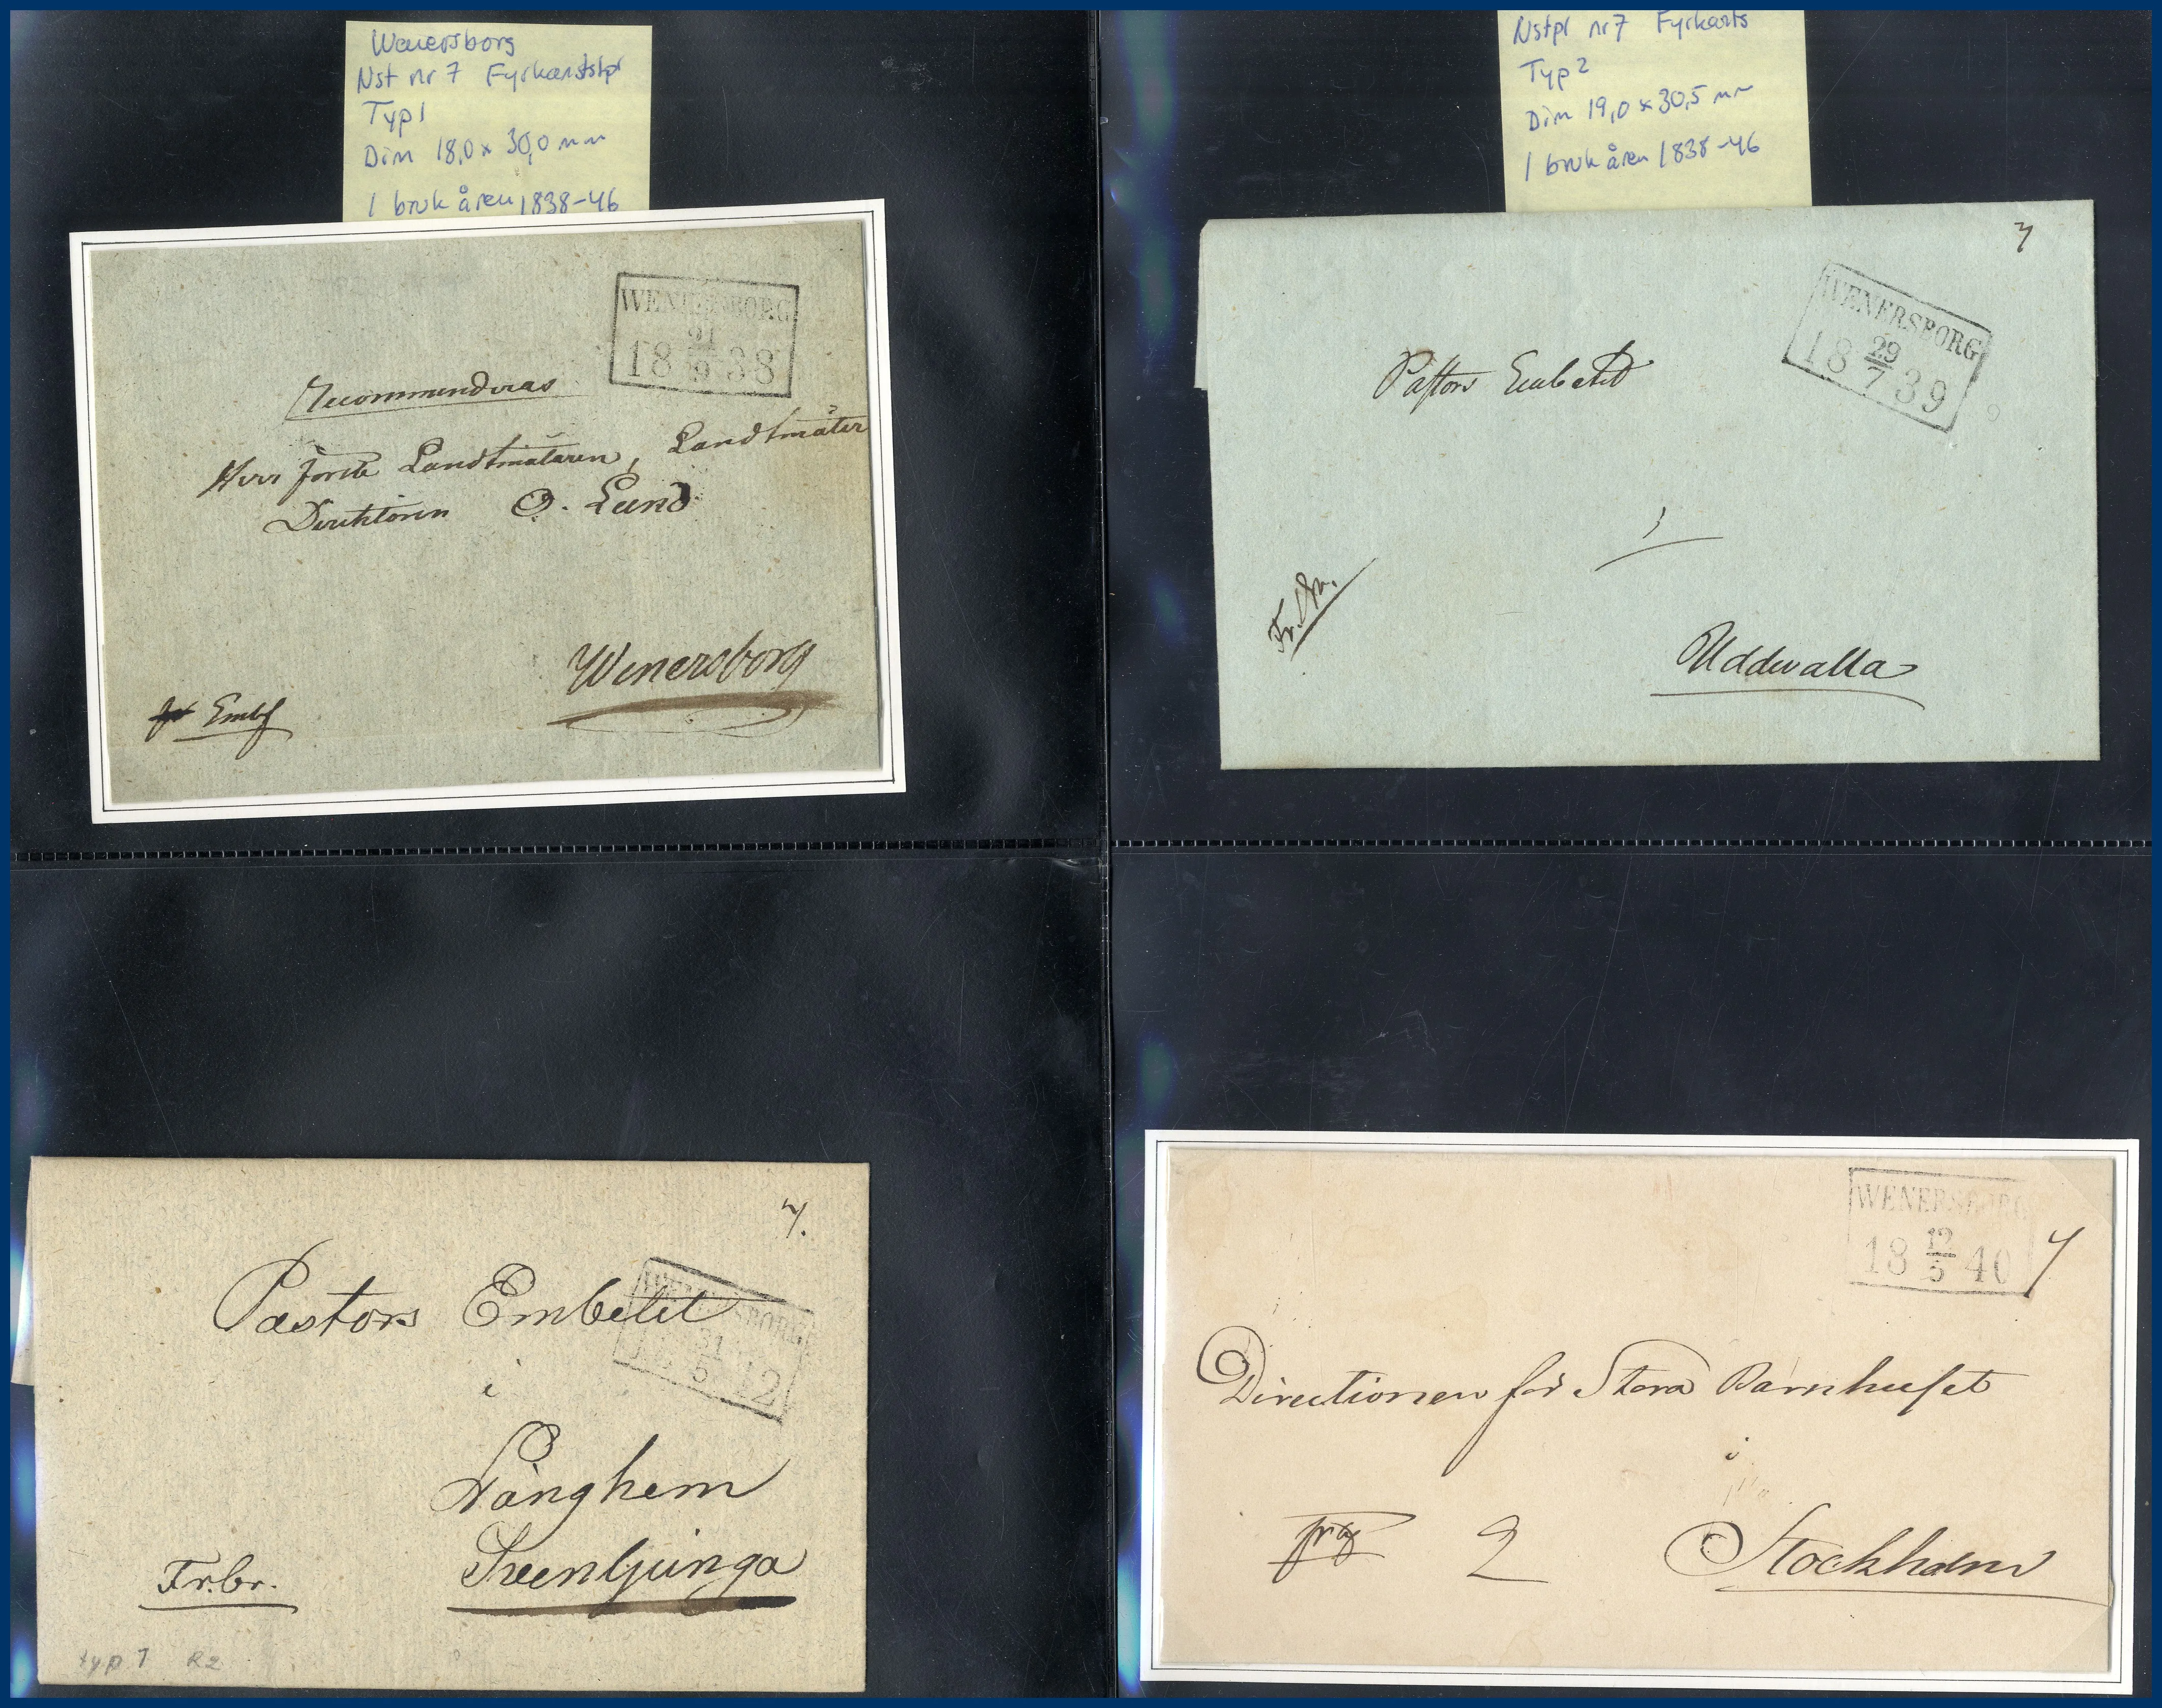 Wenersborg
Nst nr 7 Fyrkantstpl
Typ 1
Dim 18,0 x 30,0 mm
I bruk åren 1838-46
WENERSBORG
18 21/9 38
Recommenderas
Herr Förste Landtmätaren, Landtmäter
Direktören O. Lund
Wenersborg
Embf
Nstpl nr 7 Fyrkants
Typ 2
Dim 19,0 x 30,5 mm
I bruk åren 1838-46
7
WENERSBORG
18 29/7 39
Pastors Embetet
i
Fr. Br.
Uddevalla
7.
WENERSBORG
31/5 42
Pastors Embetet
i
Långhem
Svenljunga
Fr. br.
typ 1 R2
WENERSBORG
18 12/5 40
7
Directionen för Stora Barnhuset
i
2
Stockholm